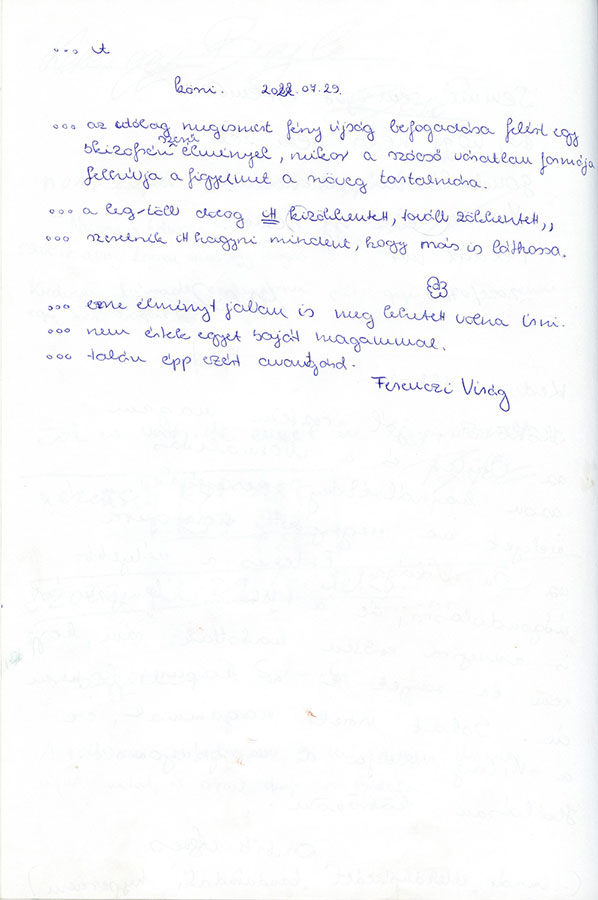 ... A
kóni. 2022.07.29.
... az utólag megismert fény újság befogadása felért egy
szerű
skizofrén élménnyel, mikor a szócső váratlan formája
felhívja a figyelmet a szöveg tartalmára.
... a leg-több dolog itt kizökkentett, tovább zökkentett,,
... szeretnék itt hagyni mindent, hogy más is láthassa.
... erre élményt jobban is meg lehetett volna írni.
... nem értek egyet saját magammal.
... talán épp ezért avantgárd.
Ferenczi Virág